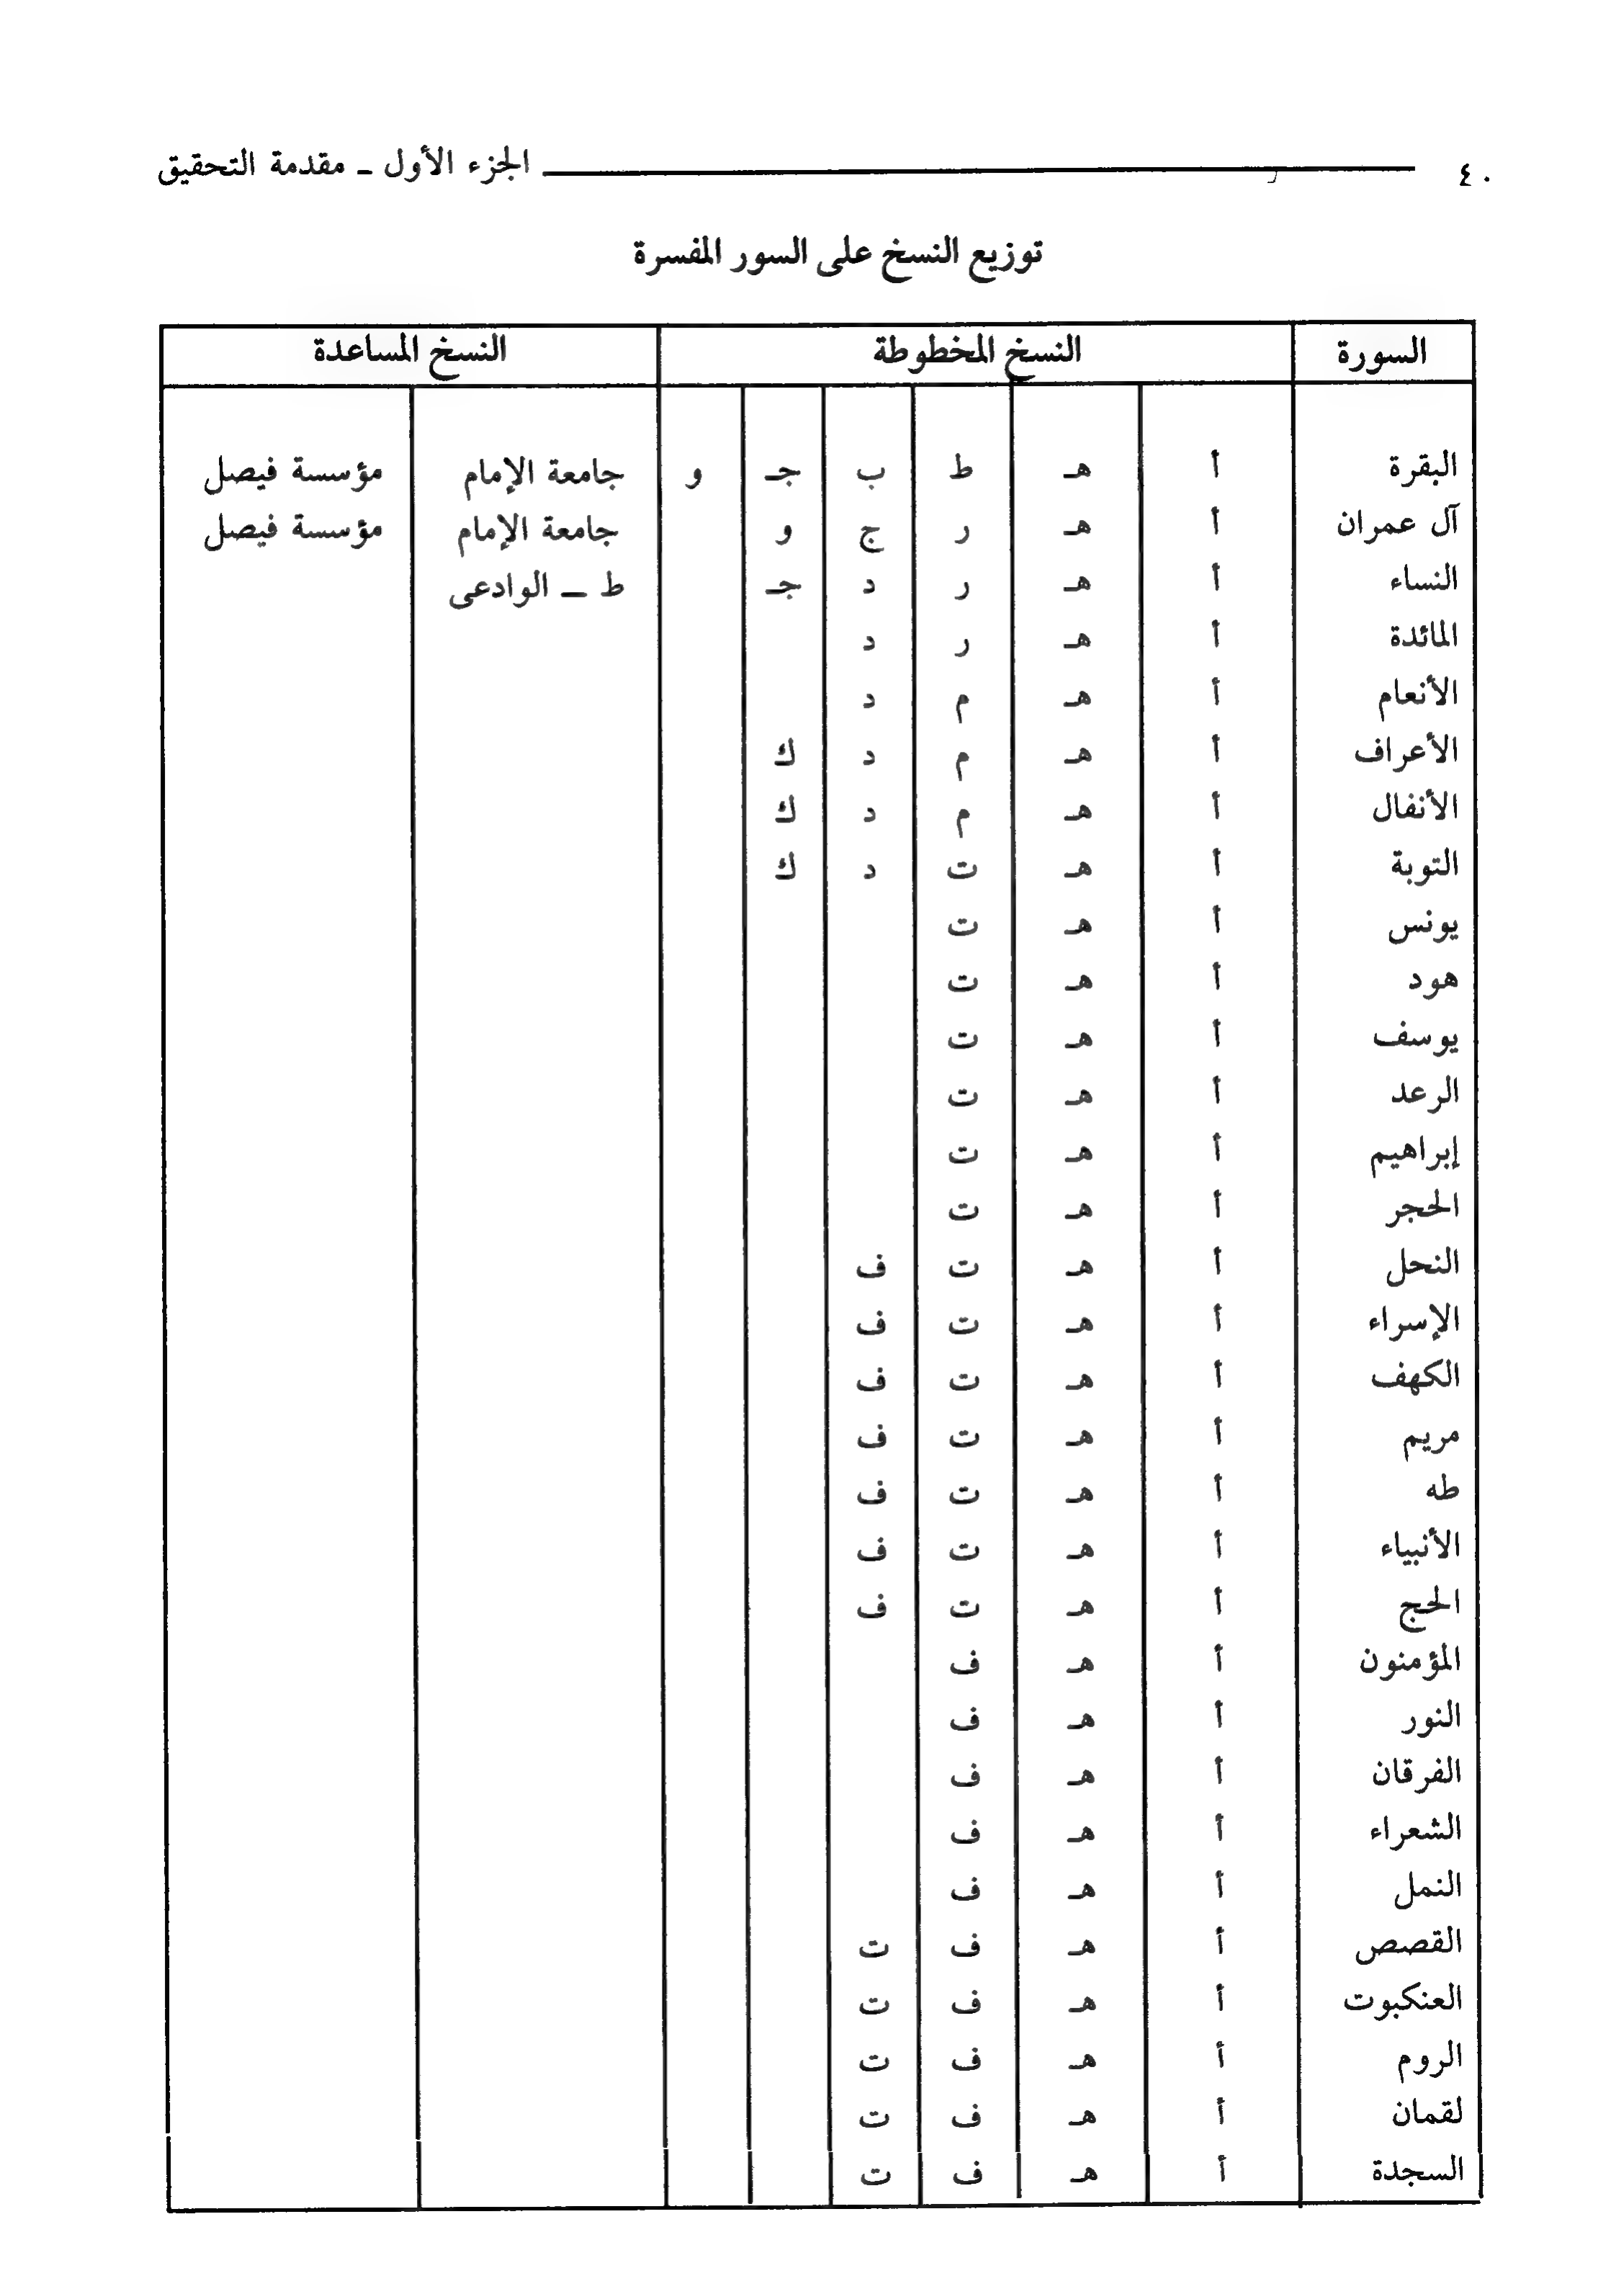 ٤٠ الجزء الأول ـ مقدمة التحقيق
توزيع النسخ على السور المفسرة
السورة النسخ المخطوطة النسخ المساعدة
البقرة أ هـ ط ب جـ و جامعة الإمام مؤسسة فيصل
آل عمران أ هـ ر ج و جامعة الإمام مؤسسة فيصل
النساء أ هـ ر د جـ ط ــ الوادعى
المائدة أ هـ ر د
الأنعام أ هـ م د
الأعراف أ هـ م د ك
الأنفال أ هـ م د ك
التوبة أ هـ ت د ك
يونس أ هـ ت
هود أ هـ ت
يوسف أ هـ ت
الرعد أ هـ ت
إبراهيم أ هـ ت
الحجر أ هـ ت
النحل أ هـ ت ف
الإسراء أ هـ ت ف
الكهف أ هـ ت ف
مريم أ هـ ت ف
طه أ هـ ت ف
الأنبياء أ هـ ت ف
الحج أ هـ ت ف
المؤمنون أ هـ ف
النور أ هـ ف
الفرقان أ هـ ف
الشعراء أ هـ ف
النمل أ هـ ف
القصص أ هـ ف ت
العنكبوت أ هـ ف ت
الروم أ هـ ف ت
لقمان أ هـ ف ت
السجدة أ هـ ف ت